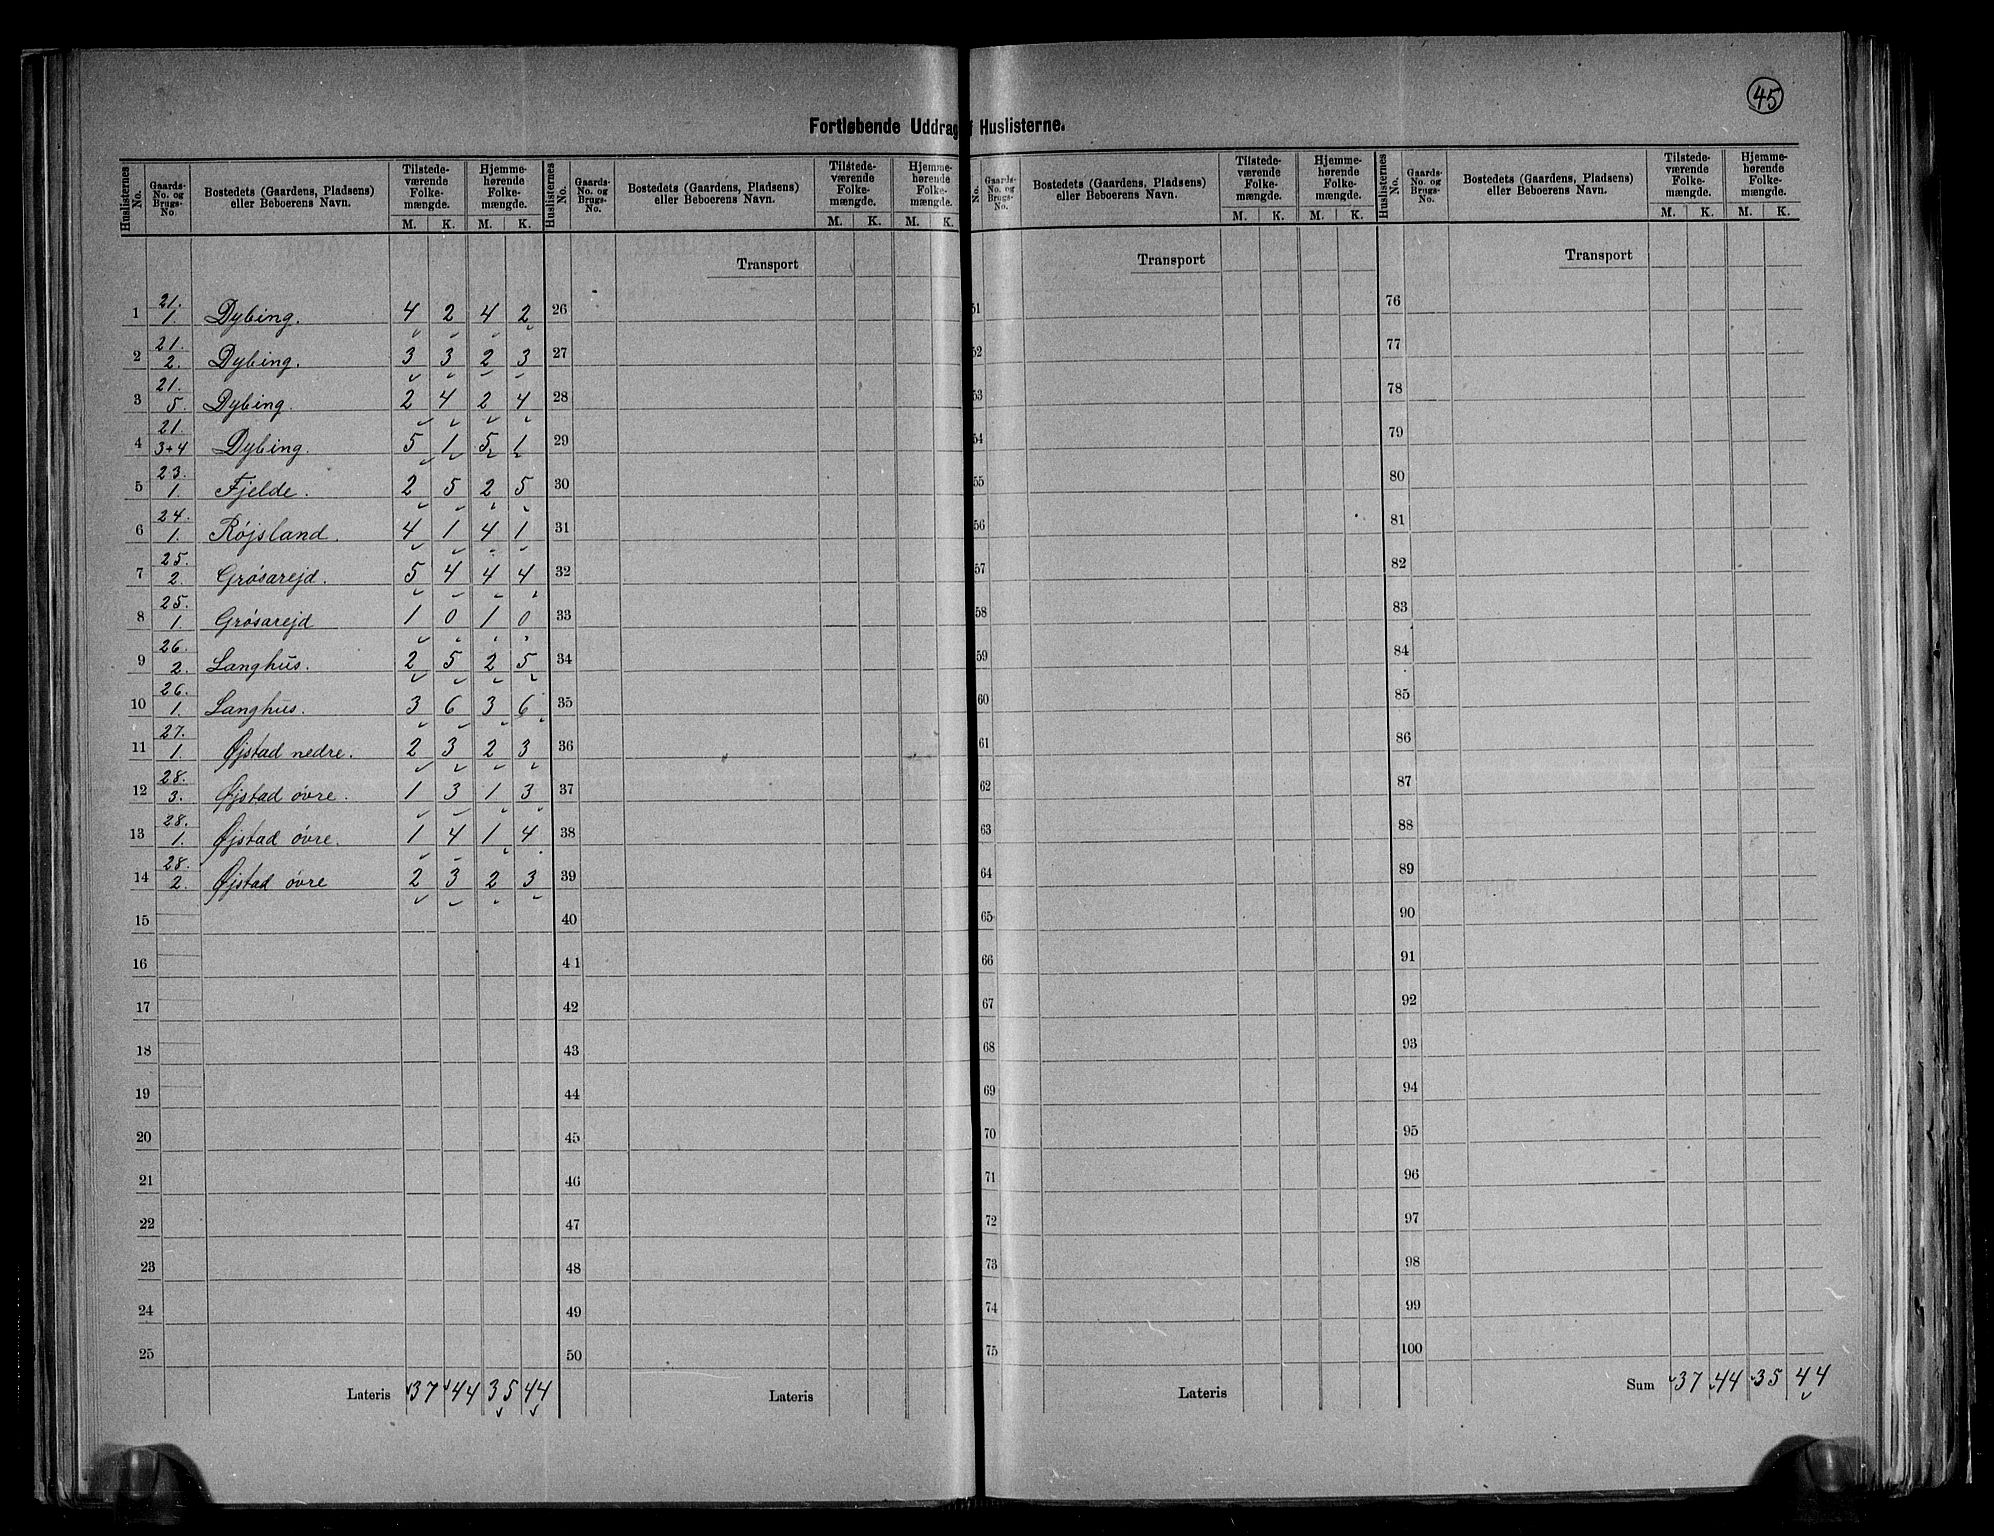 45
Fortløbende Uddrag Huslisterne.
Huslisternes No. | Gaards-No. og Brugs-No. | Bostedets (Gaardens, Pladsens) eller Beboerens Navn. | Tilstedeværende Folkemængde. M. K. | Hjemmehørende Folkemængde. M. K.
Huslisternes No. | Gaards-No. og Brugs-No. | Bostedets (Gaardens, Pladsens) eller Beboerens Navn. | Tilstedeværende Folkemængde. M. K. | Hjemmehørende Folkemængde. M. K.
No. | Gaards-No. og Brugs-No. | Bostedets (Gaardens, Pladsens) eller Beboerens Navn. | Tilstedeværende Folkemængde. M. K. | Hjemmehørende Folkemængde. M. K.
Huslisternes No. | Gaards-No. og Brugs-No. | Bostedets (Gaardens, Pladsens) eller Beboerens Navn. | Tilstedeværende Folkemængde. M. K. | Hjemmehørende Folkemængde. M. K.
Transport Transport Transport
1 21. 1. Dybing. 4 2 4 2 26 51 76
2 21. 2. Dybing. 3 3 2 3 27 52 77
3 21. 5. Dybing. 2 4 2 4 28 53 78
4 21. 3+4 Dybing. 5 1 5 1 29 54 79
5 23. 1. Fjelde. 2 5 2 5 30 55 80
6 24. 1. Røjsland. 4 1 4 1 31 56 81
7 25. 2. Grøsarejd. 5 4 4 4 32 57 82
8 25. 1. Grøsarejd 1 0 1 0 33 58 83
9 26. 2. Langhus. 2 5 2 5 34 59 84
10 26. 1. Langhus. 3 6 3 6 35 60 85
11 27. 1. Øjstad nedre. 2 3 2 3 36 61 86
12 28. 3. Øjstad øvre. 1 3 1 3 37 62 87
13 28. 1. Øjstad øvre. 1 4 1 4 38 63 88
14 28. 2. Øjstad øvre 2 3 2 3 39 64 89
15 40 65 90
16 41 66 91
17 42 67 92
18 43 68 93
19 44 69 94
20 45 70 95
21 46 71 96
22 47 72 97
23 48 73 98
24 49 74 99
25 50 75 100
Lateris 37 44 35 44 Lateris Lateris Sum 37 44 35 44